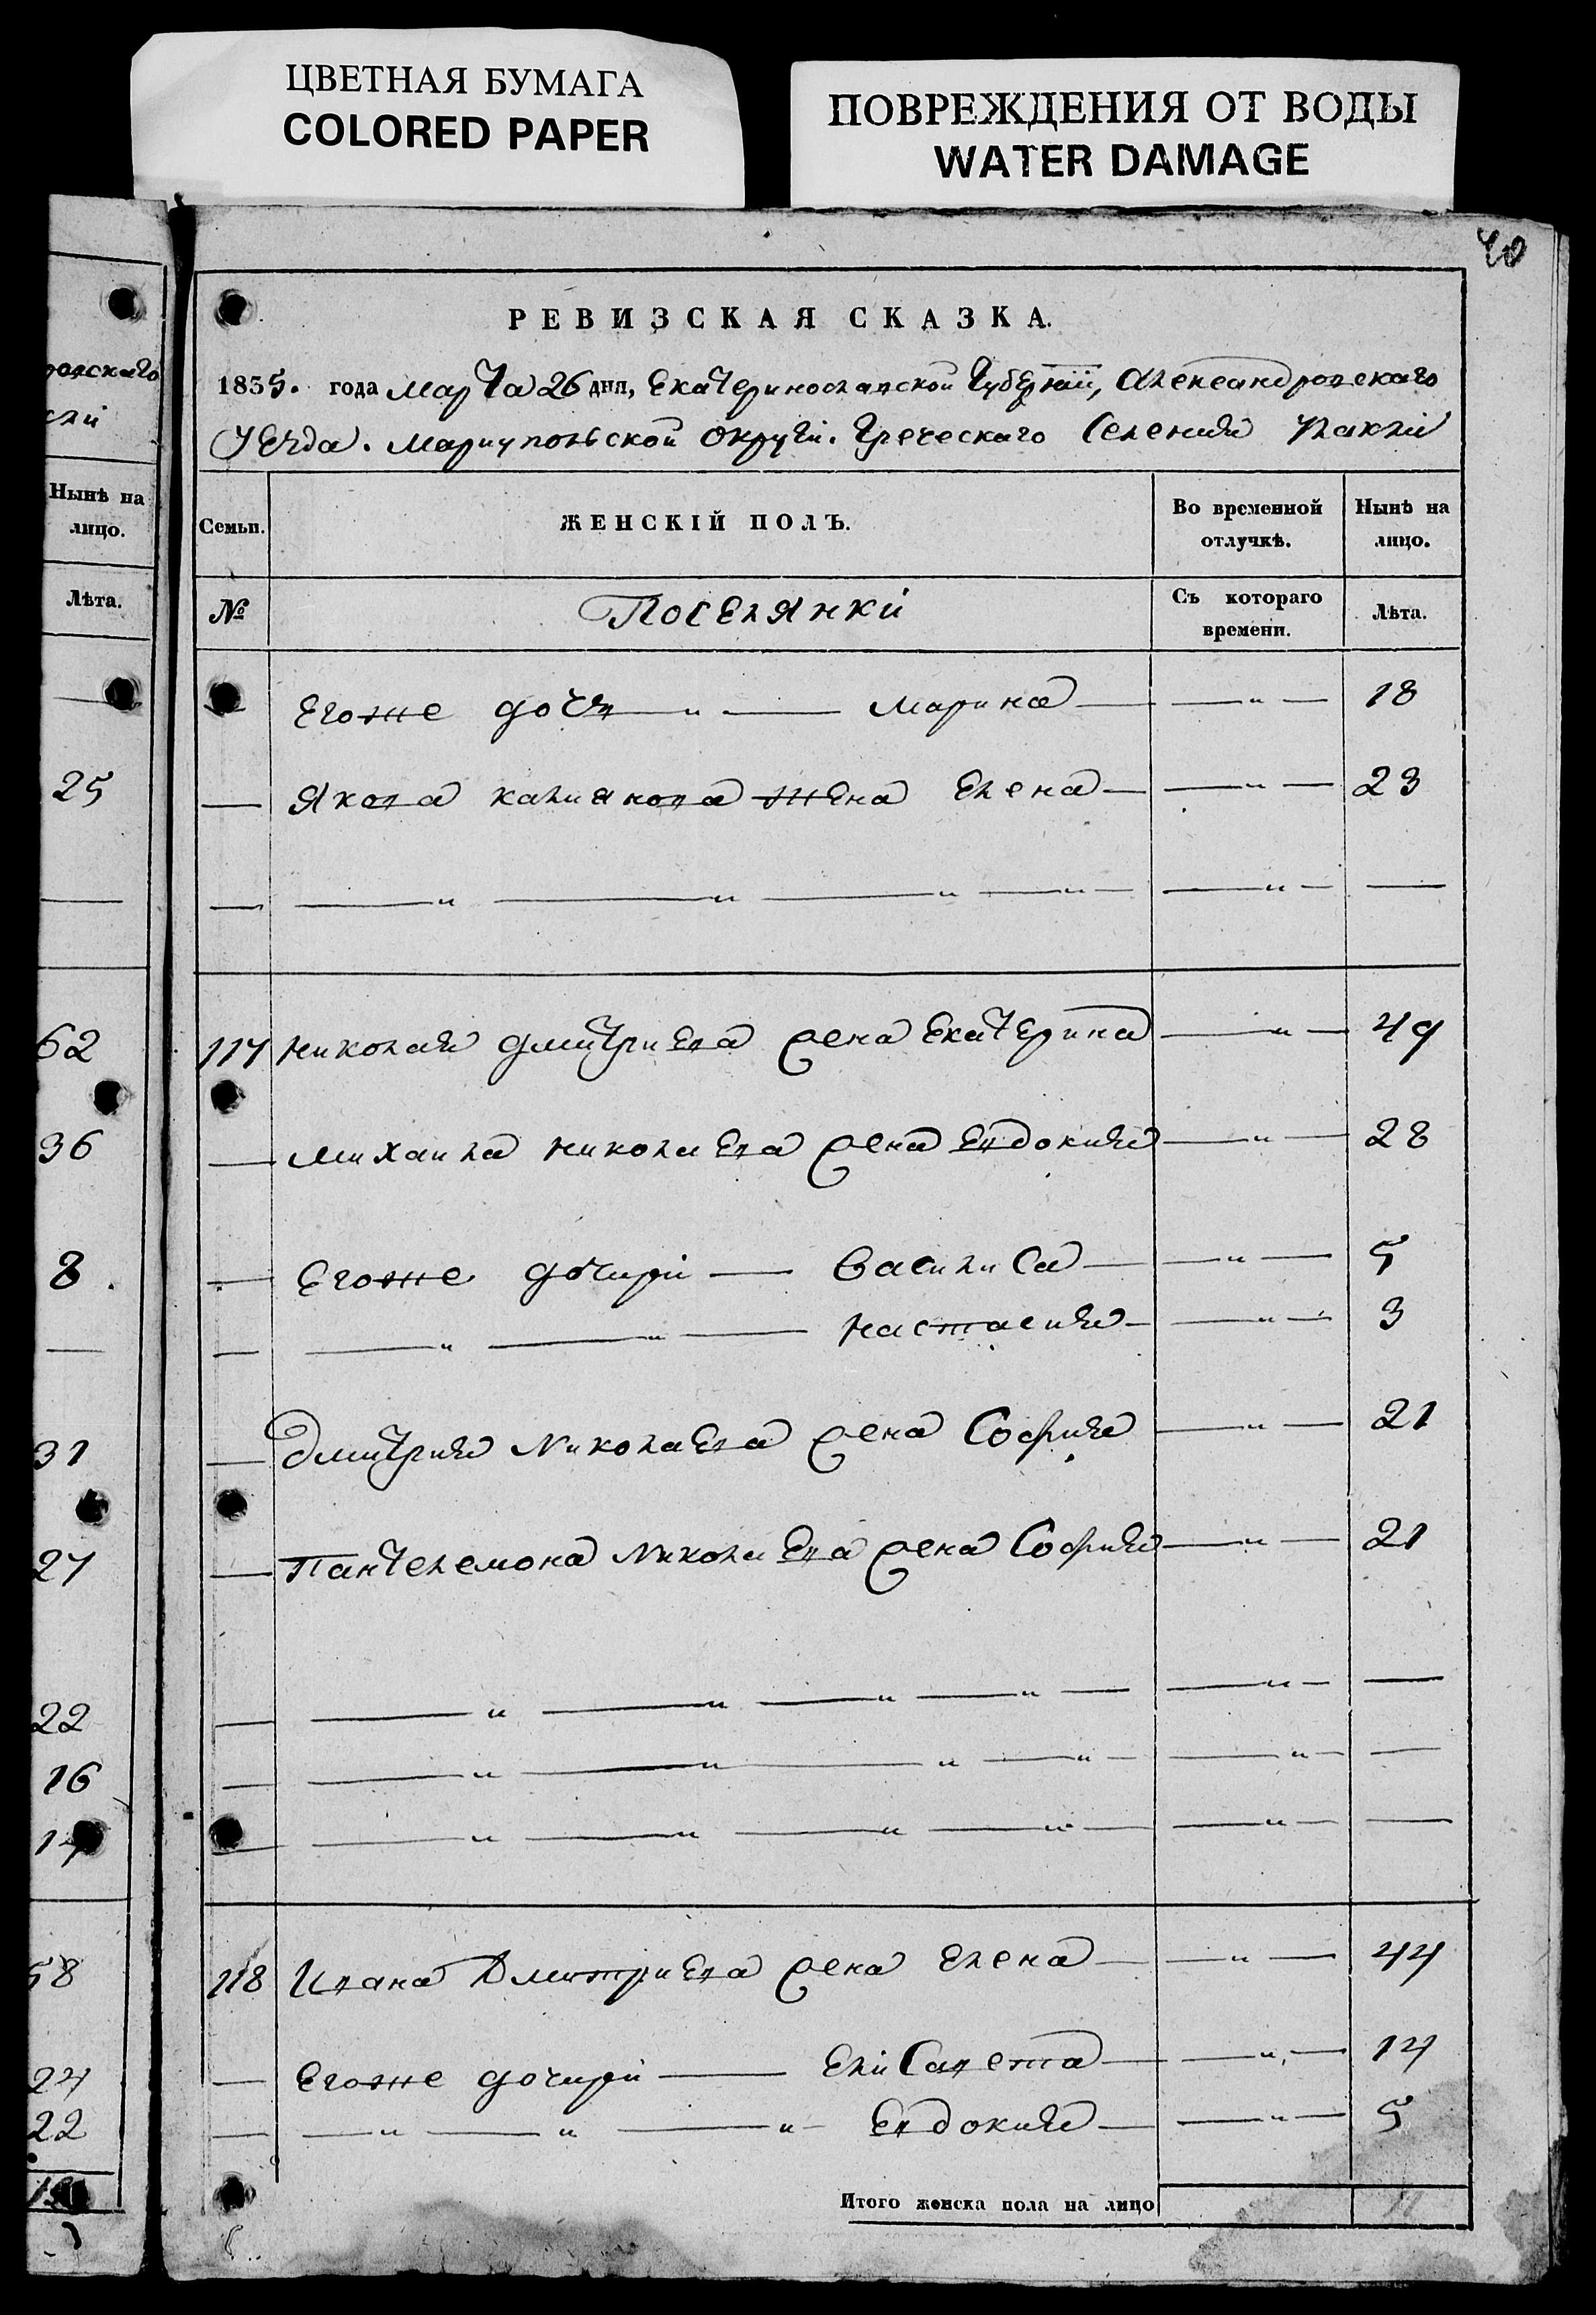 ЦВЕТНАЯ БУМАГА
COLORED PAPER
ПОВРЕЖДЕНИЯ ОТ ВОДЫ
WATER DAMAGE
40
РЕВИЗСКАЯ СКАЗКА.
1835. года марта 26 дня, Екатеринославской Губернии, Александровскаго
Уезда. мариупольской округи. Греческаго Селения
Семьи. ЖЕНСКІЙ ПОЛЪ. Во временной отлучкѣ. Нынѣ на лицо.
№ Поселянки Съ котораго времени. Лѣта.
Егоже дочь — " — марина — " — 18
Якова калианова жена Елена — " — 23
117 николая дмитриева жена Екатерина — " — 49
михаила николаева жена Евдокия — " — 28
Егоже дочири — Василиса — " — 5
— " — " — настасия — " — 3
Дмитрия Николаева жена София — " — 21
Пантелемона Николаева жена София — " — 21
118 Ивана Дмитриева жена Елена — " — 44
Егоже дочири — Елисавета — " — 14
— " — " — " — Евдокия — " — 5
Итого женска пола на лицо
Нынѣ на
лицо.
Лѣта.
25
62
36
8
31
27
22
16
58
24
22